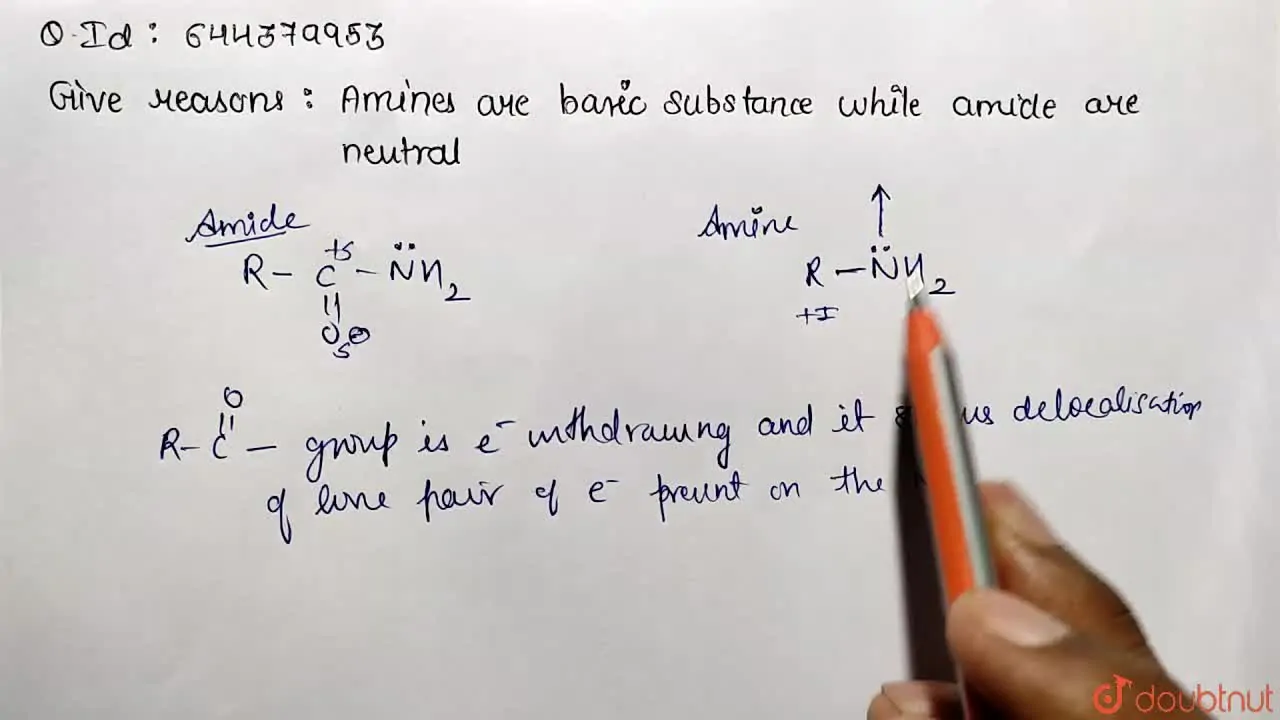 Q.Id : 644379953
Give reasons : Amines are basic substance while amide are
neutral
Amide
Amine
R - C - N̈H₂
+δ
R - N̈H₂
+I
O
δ⊖
O
R - C - group is e⁻ withdrawing and it delocalisation
of lone pair of e⁻ present on the
doubtnut